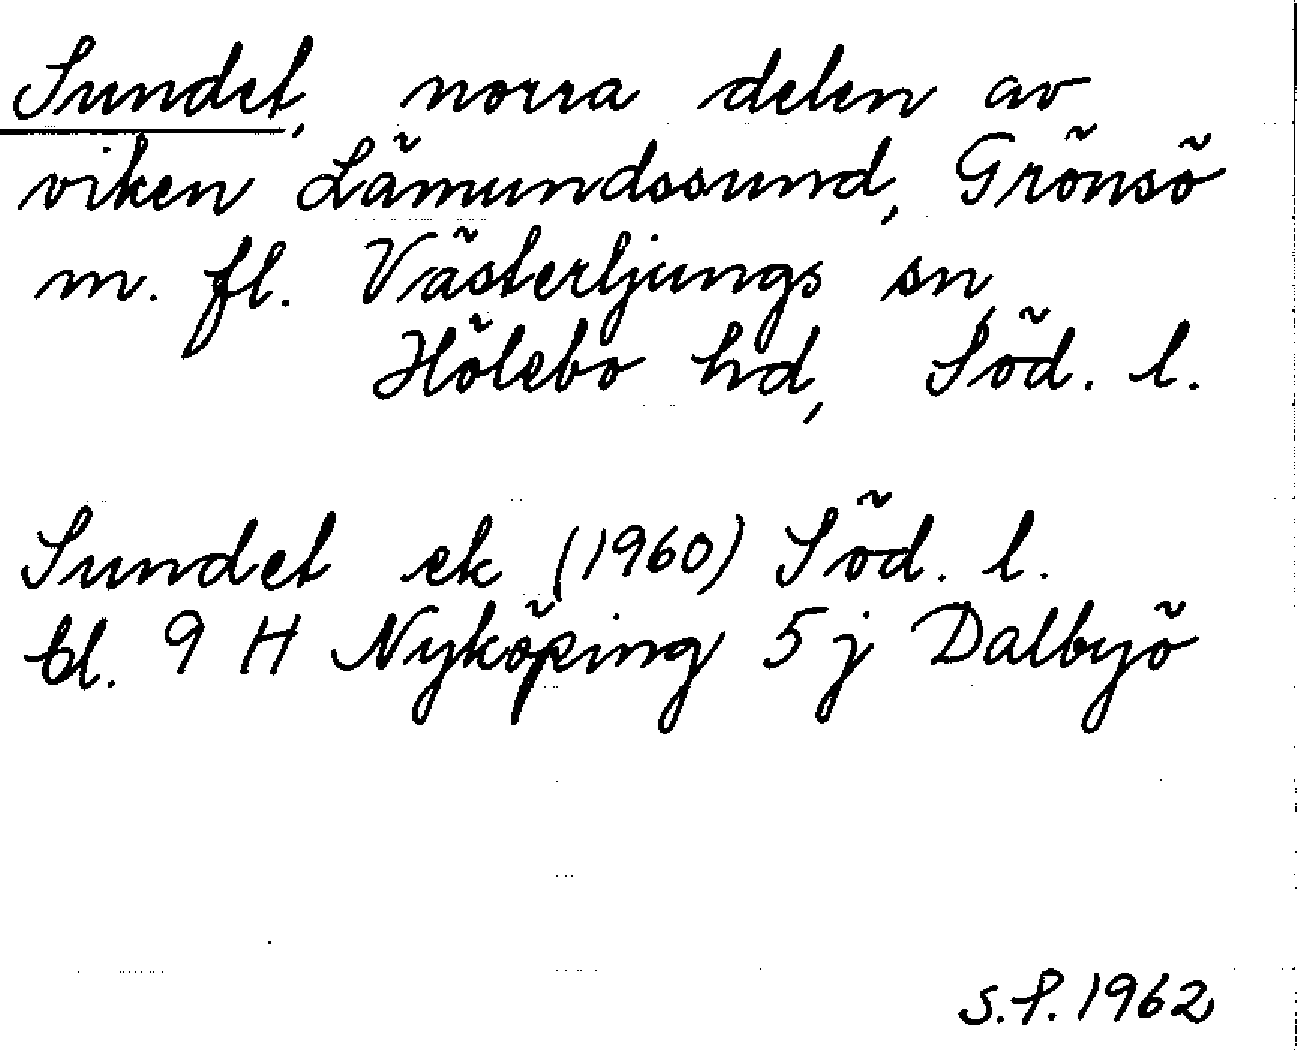 Sundet, norra delen av
viken Lämundssund, Grönsö
m. fl. Västerljungs sn,
Hölebo hd, Söd. l.
Sundet ek (1960) Söd. l.
bl. 9 H Nyköping 5 j Dalbyö
S.P. 1962